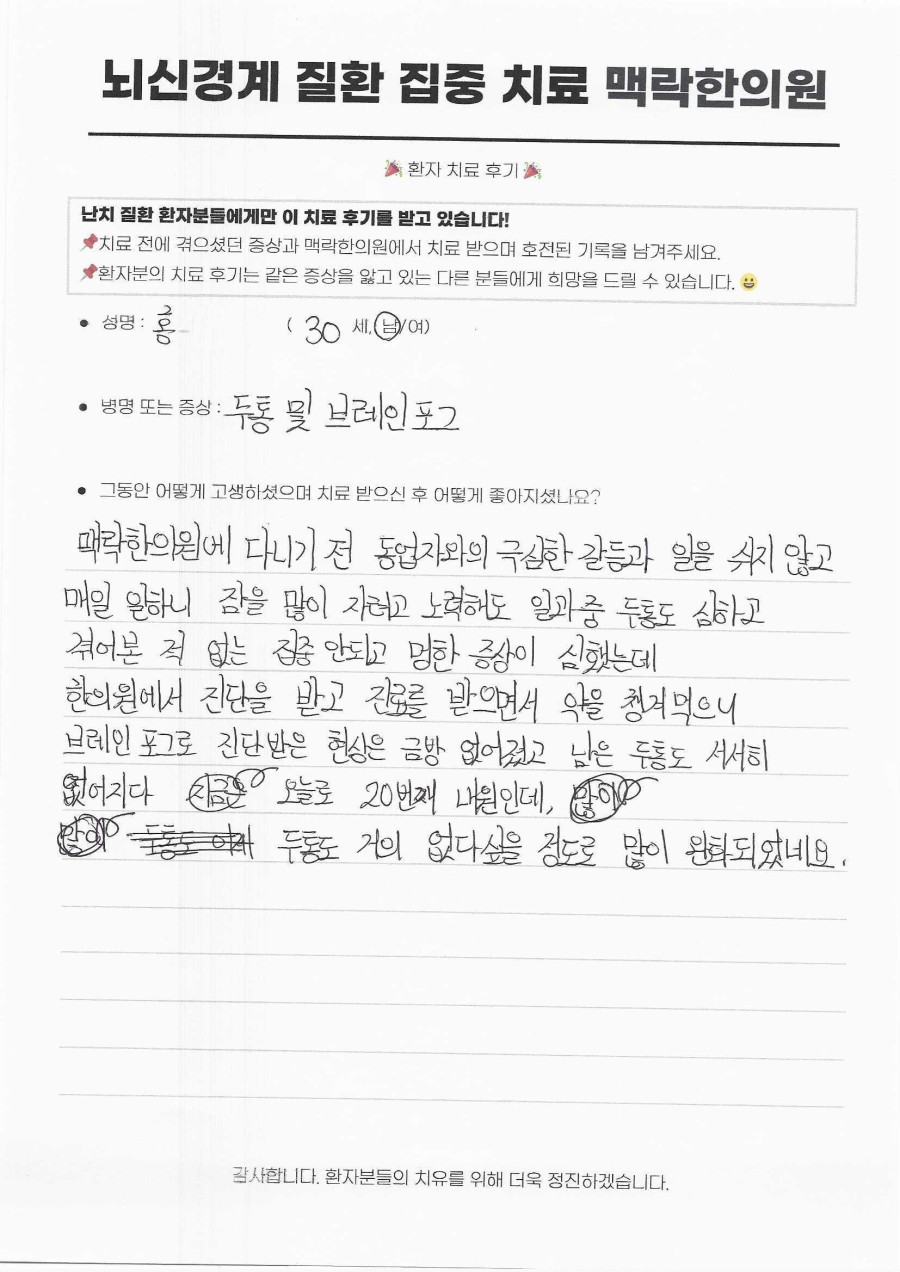 뇌신경계 질환 집중 치료 맥락한의원
환자 치료 후기
난치 질환 환자분들에게만 이 치료 후기를 받고 있습니다!
치료 전에 겪으셨던 증상과 맥락한의원에서 치료 받으며 호전된 기록을 남겨주세요.
환자분의 치료 후기는 같은 증상을 앓고 있는 다른 분들에게 희망을 드릴 수 있습니다.
● 성명 : 홍 ( 30 세, 남/여)
● 병명 또는 증상 : 두통 및 브레인포그
● 그동안 어떻게 고생하셨으며 치료 받으신 후 어떻게 좋아지셨나요?
맥락한의원에 다니기 전 동업자와의 극심한 갈등과 일을 쉬지 않고
매일 일하니 잠을 많이 자려고 노력해도 일과중 두통도 심하고
겪어본 적 없는 집중 안되고 멍한 증상이 심했는데
한의원에서 진단을 받고 진료를 받으면서 약을 챙겨먹으니
브레인 포그로 진단받은 현상은 금방 없어졌고 남은 두통도 서서히
없어지다 지금은 오늘로 20번째 내원인데, 많이
많이 두통도 이제 두통도 거의 없다싶을 정도로 많이 완화되었네요.
감사합니다. 환자분들의 치유를 위해 더욱 정진하겠습니다.